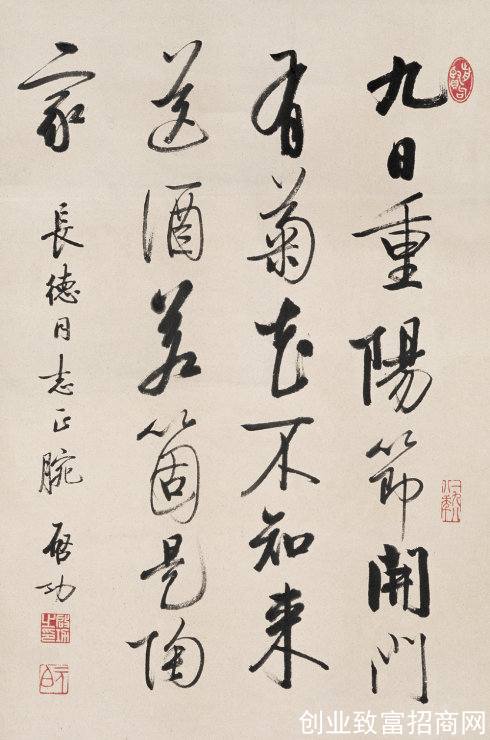 九日重陽節開門
有菊花不知来
送酒若箇是陶
家
長德同志正腕
啓功
创业致富招商网